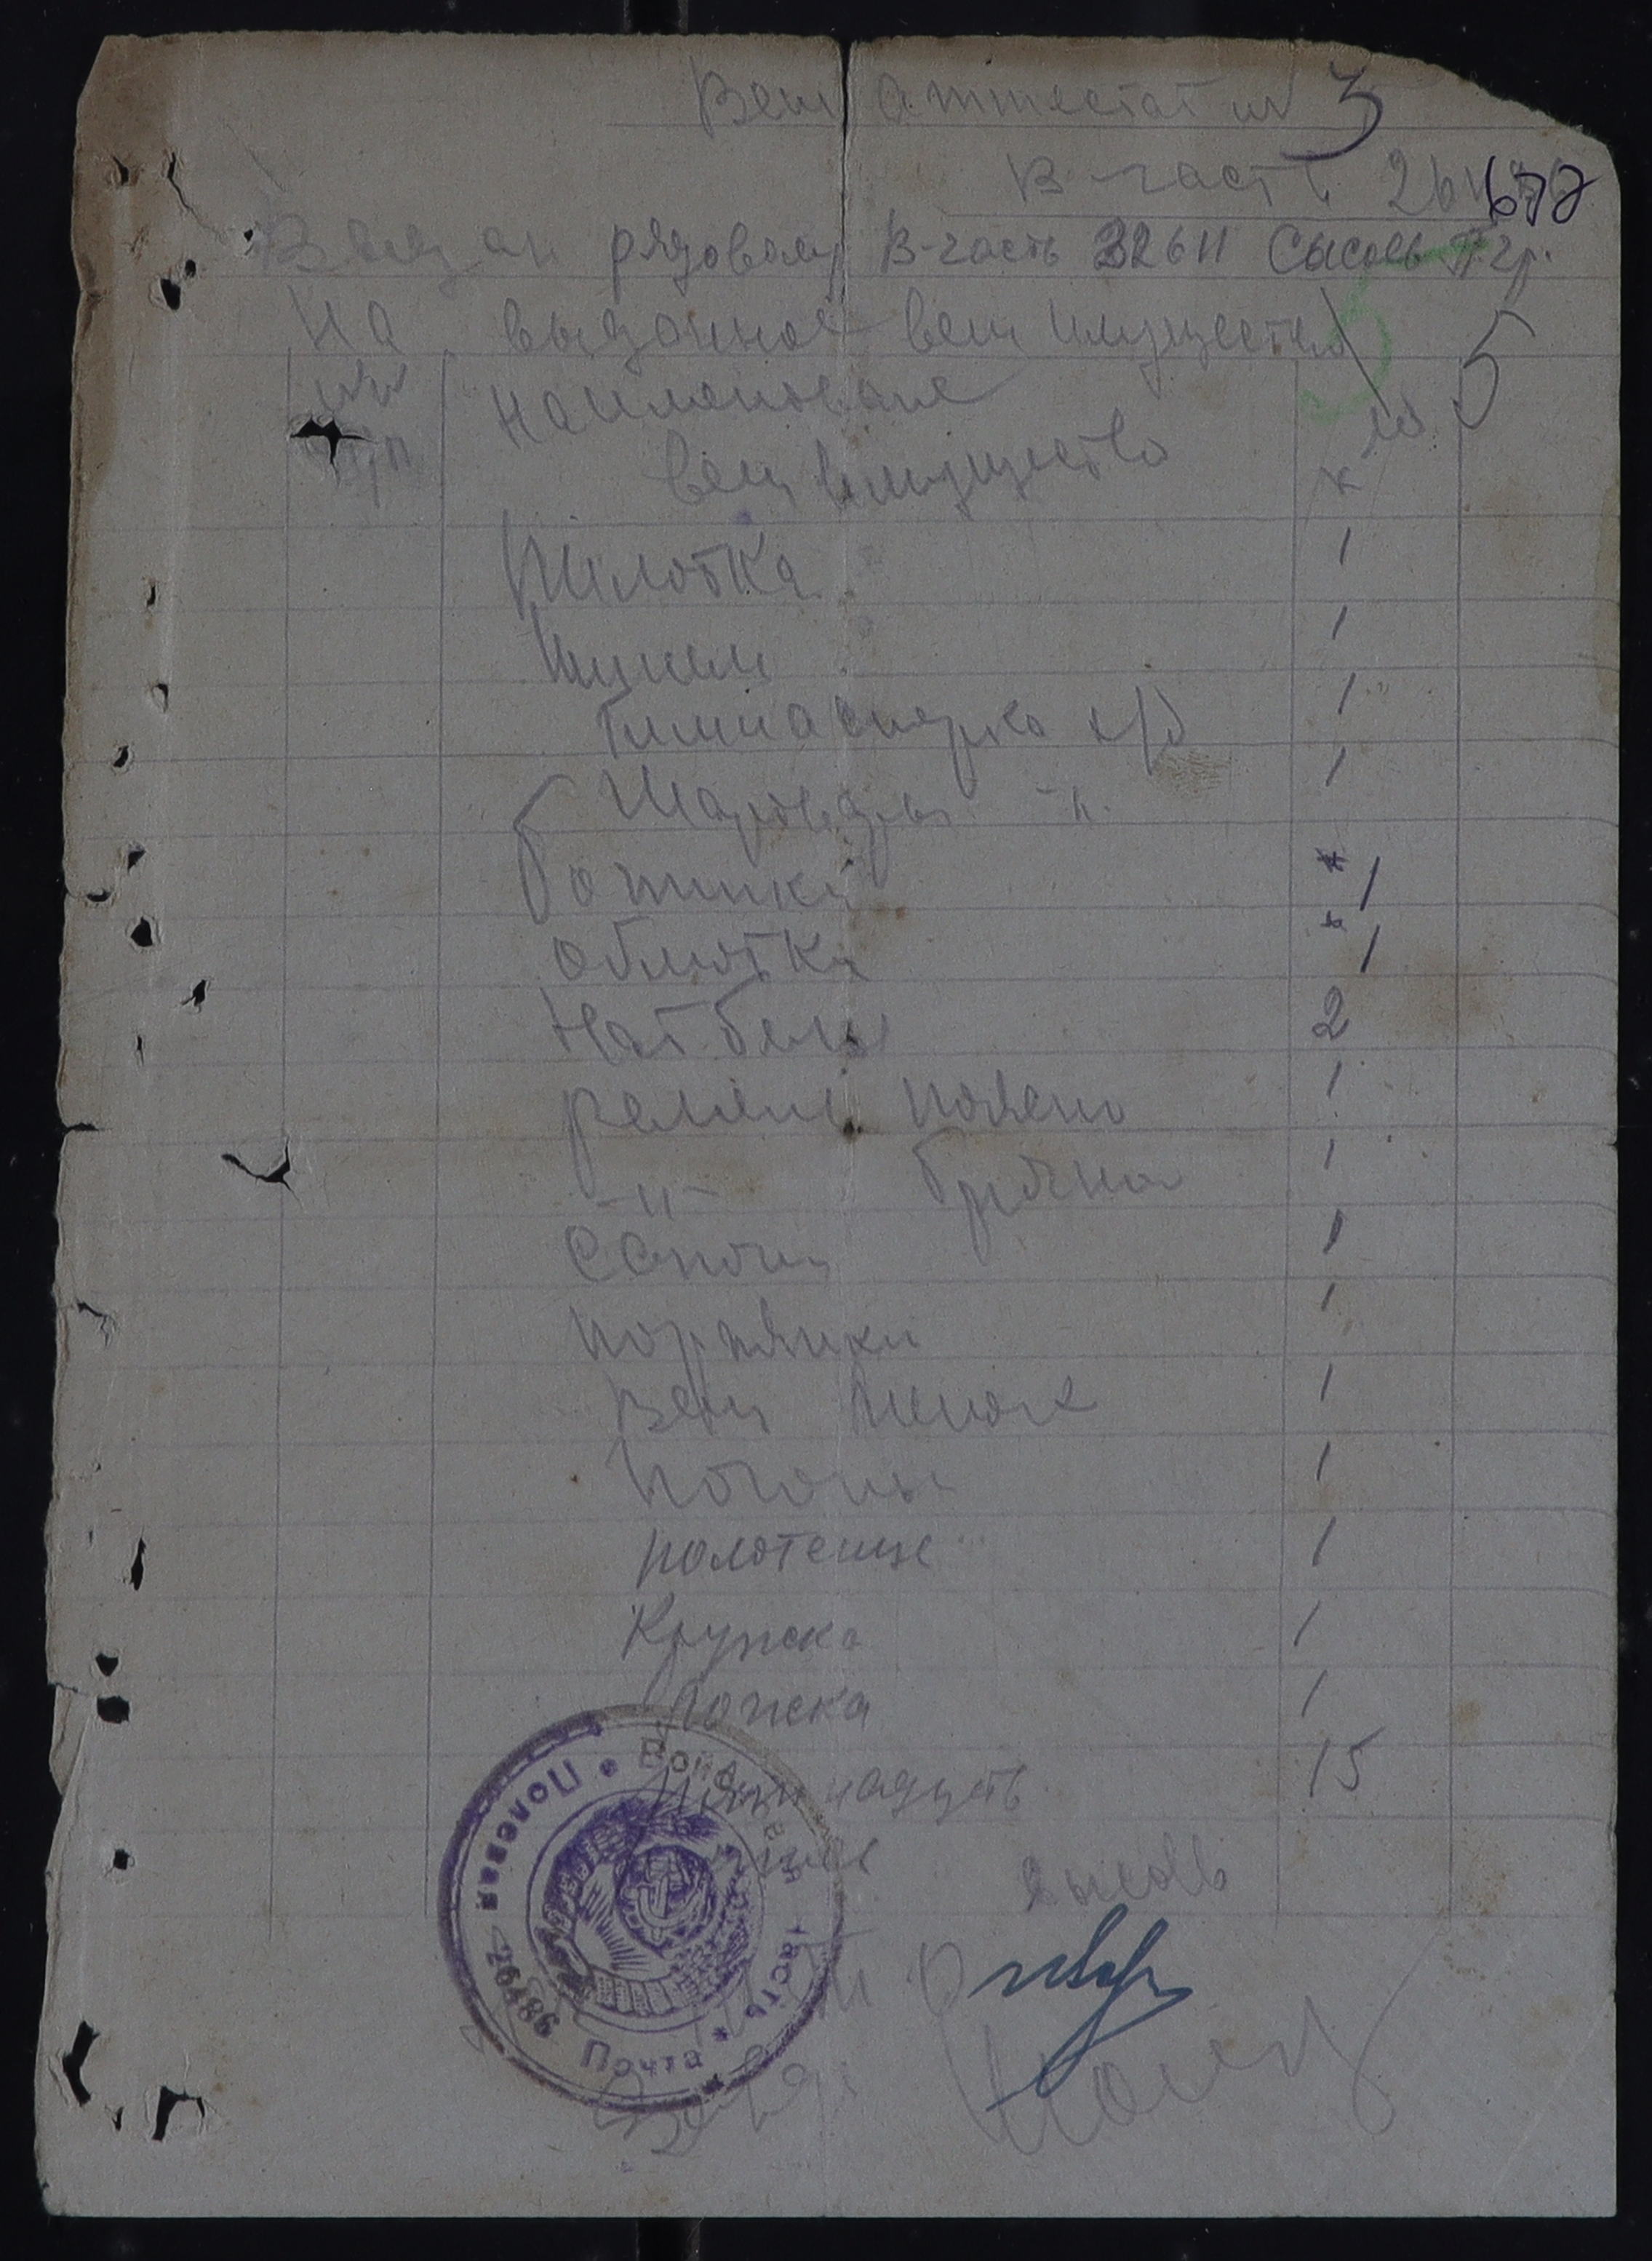 Вещ аттестат № 3
В-часть 26
678
Выдан рядовому В-часть 32611 Сысоев П. гр.
На выданное вещ имущество
5
№№ наименование
п/п вещ имущество к
Пилотка 1
Шинель 1
Гимнастерка х/б 1
Шаровары -"- 1
ботинки 1
обмотки 1
Нат. белье 2
ремень поясно 1
-"- брючно 1
Сапоги 1
портянки 1
Вещ мешок 1
Погоны 1
полотенце 1
Кружка 1
Ложка 1
Пятнадцать 15
Сысоев
Полевая Почта * Войсковая часть *
26486